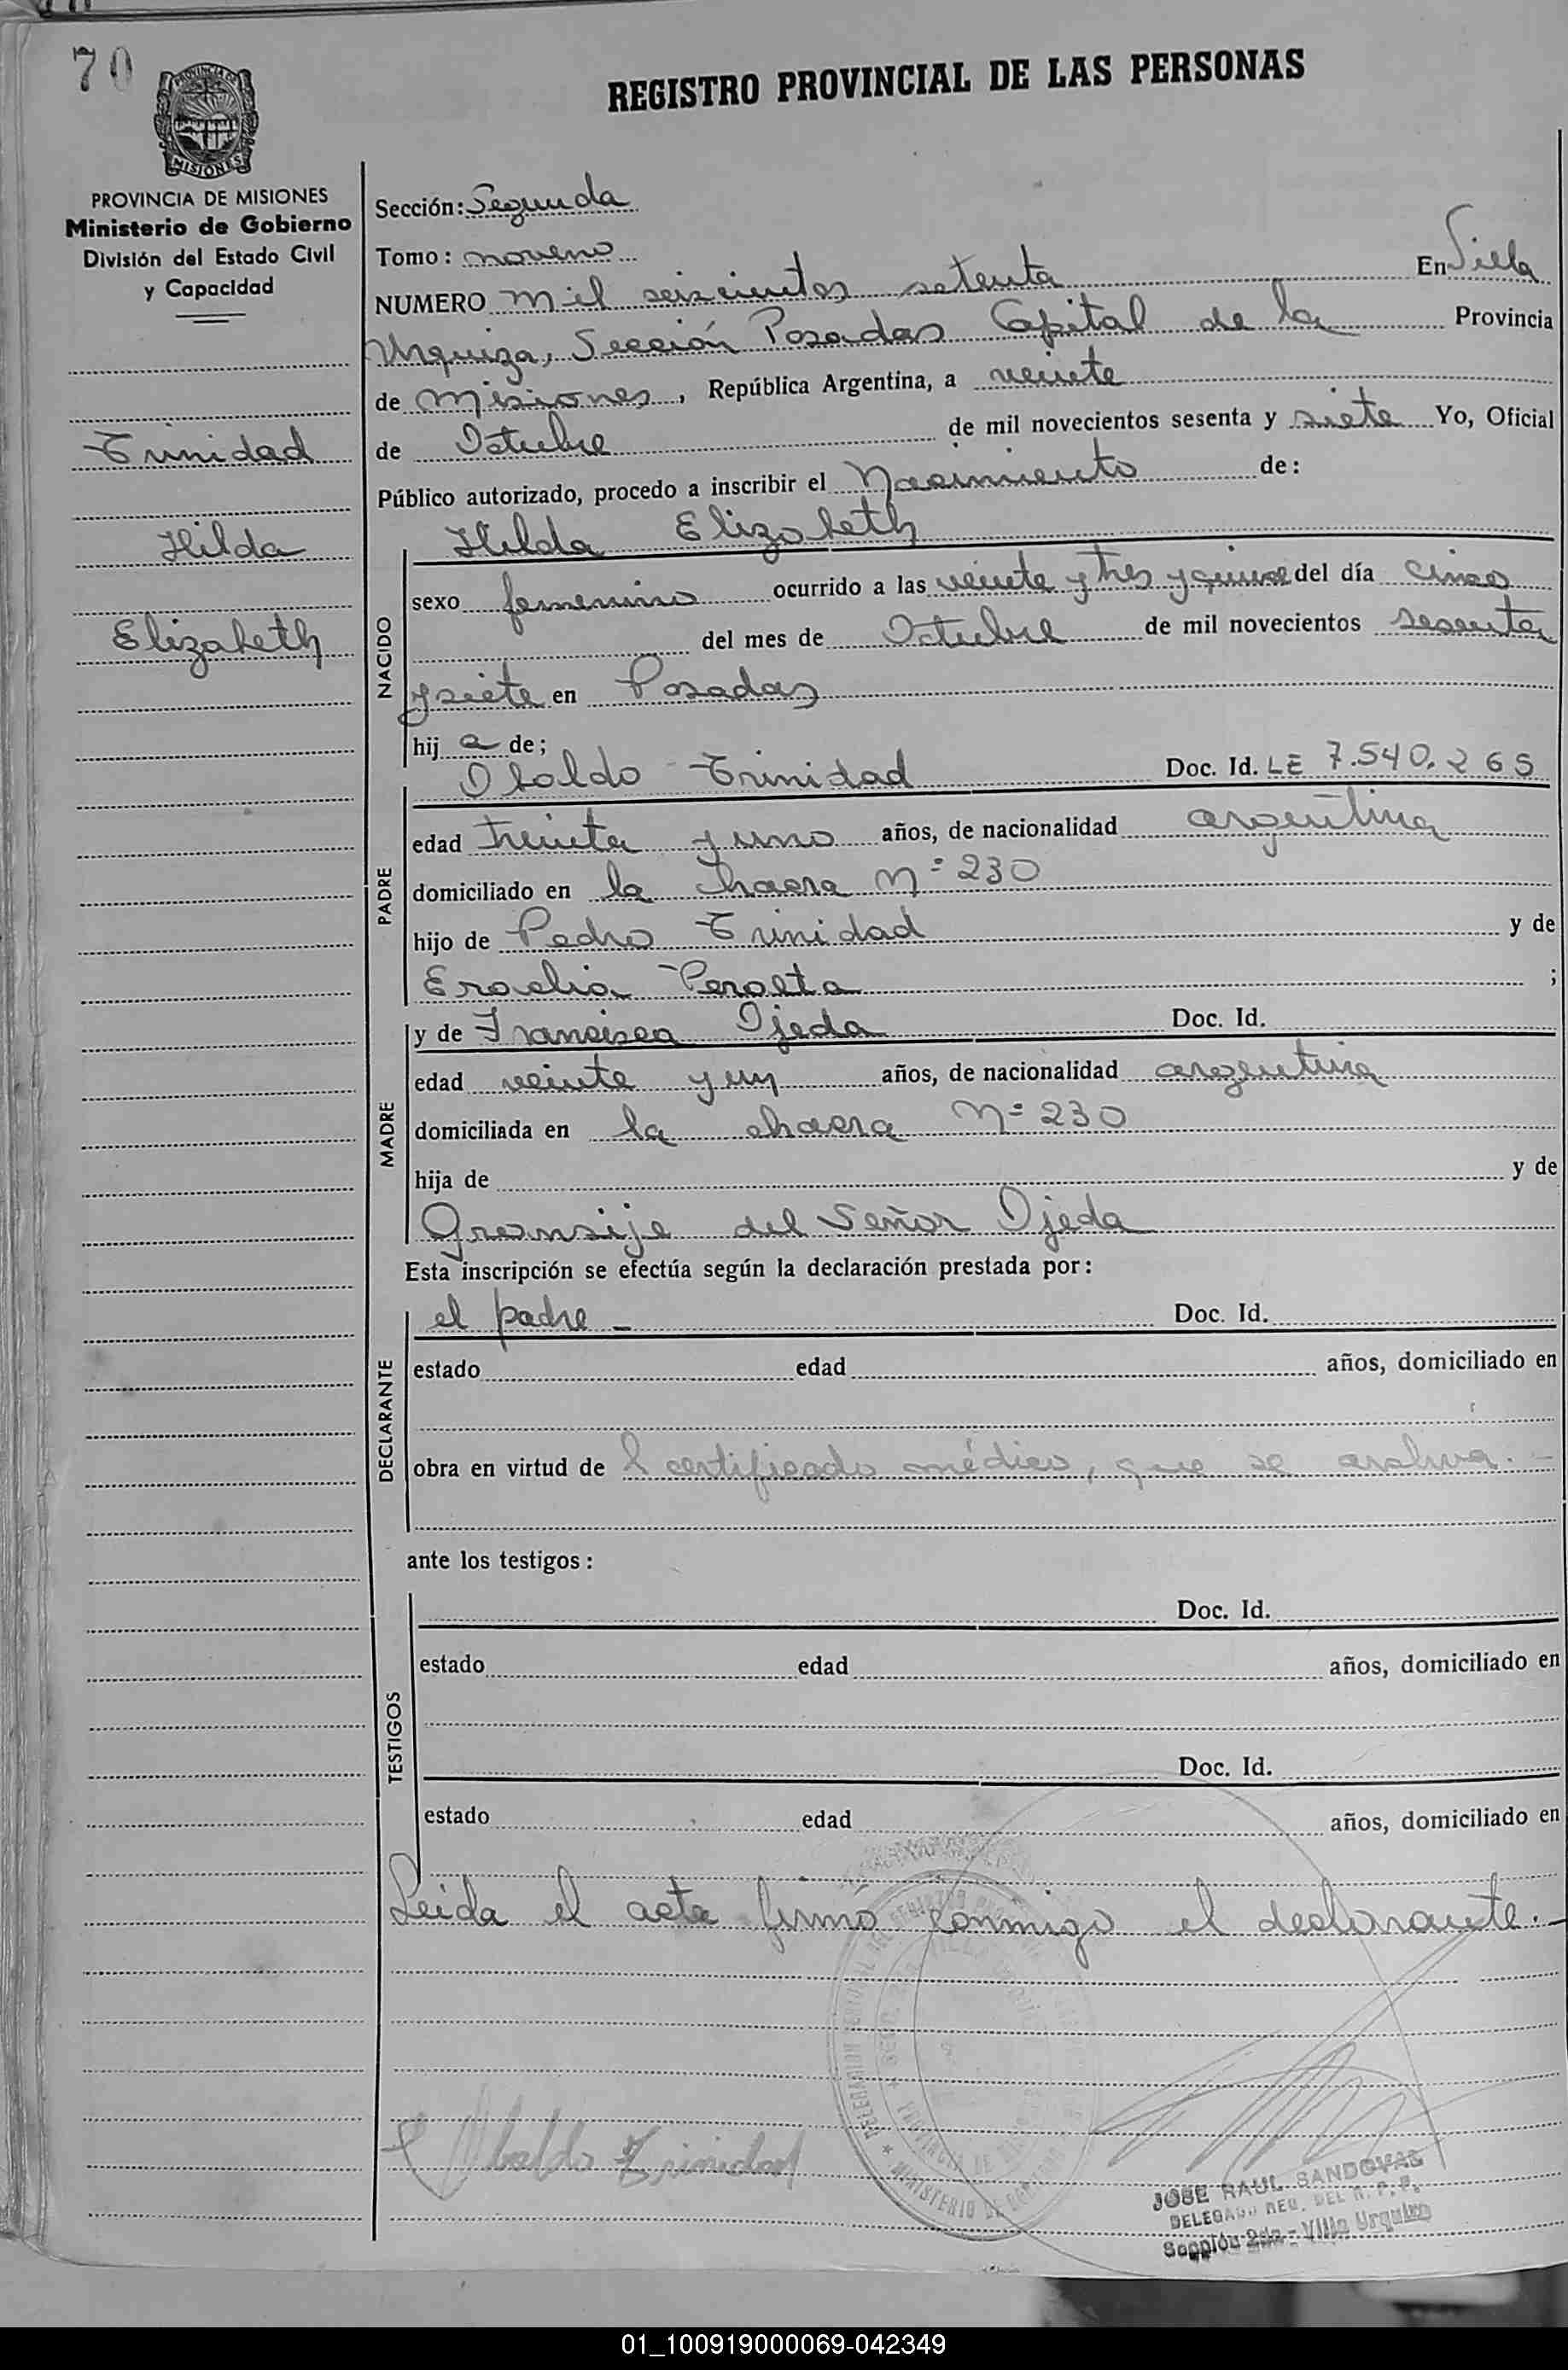 70
REGISTRO PROVINCIAL DE LAS PERSONAS
PROVINCIA DE
MISIONES
PROVINCIA DE MISIONES
Ministerio de Gobierno
División del Estado Civil
y Capacidad
Trinidad
Hilda
Elizabeth
Sección: Segunda
Tomo: noveno
NUMERO mil seiscientos setenta En Villa
Urquiza, Sección Posadas Capital de la Provincia
de Misiones, República Argentina, a veinte
de Octubre de mil novecientos sesenta y siete Yo, Oficial
Público autorizado, procedo a inscribir el Nacimiento de:
Hilda Elizabeth
NACIDO
sexo femenino ocurrido a las veinte y tres y quince del día cinco
del mes de Octubre de mil novecientos sesenta
y siete en Posadas
hij a de;
PADRE
Obaldo Trinidad Doc. Id. LE 7.540.265
edad treinta y uno años, de nacionalidad argentina
domiciliado en la chacra Nº 230
hijo de Pedro Trinidad y de
Eradia Peralta ;
MADRE
y de Francisca Ojeda Doc. Id.
edad veinte y un años, de nacionalidad argentina
domiciliada en la chacra Nº 230
hija de y de
del Señor Ojeda
Esta inscripción se efectúa según la declaración prestada por:
DECLARANTE
el padre - Doc. Id.
estado edad años, domiciliado en
obra en virtud de l certificado médico, que se archiva.-
ante los testigos:
TESTIGOS
Doc. Id.
estado edad años, domiciliado en
Doc. Id.
estado edad años, domiciliado en
Leida el acta firmó conmigo el declarante.-
Ubaldo Trinidad
PROVINCIA DE
MINISTERIO DE GOBIERNO
JOSE RAUL SANDOVAL
DELEGADO REG. DEL R. P. P.
Sección 2da - Villa Urquiza
01_100919000069-042349